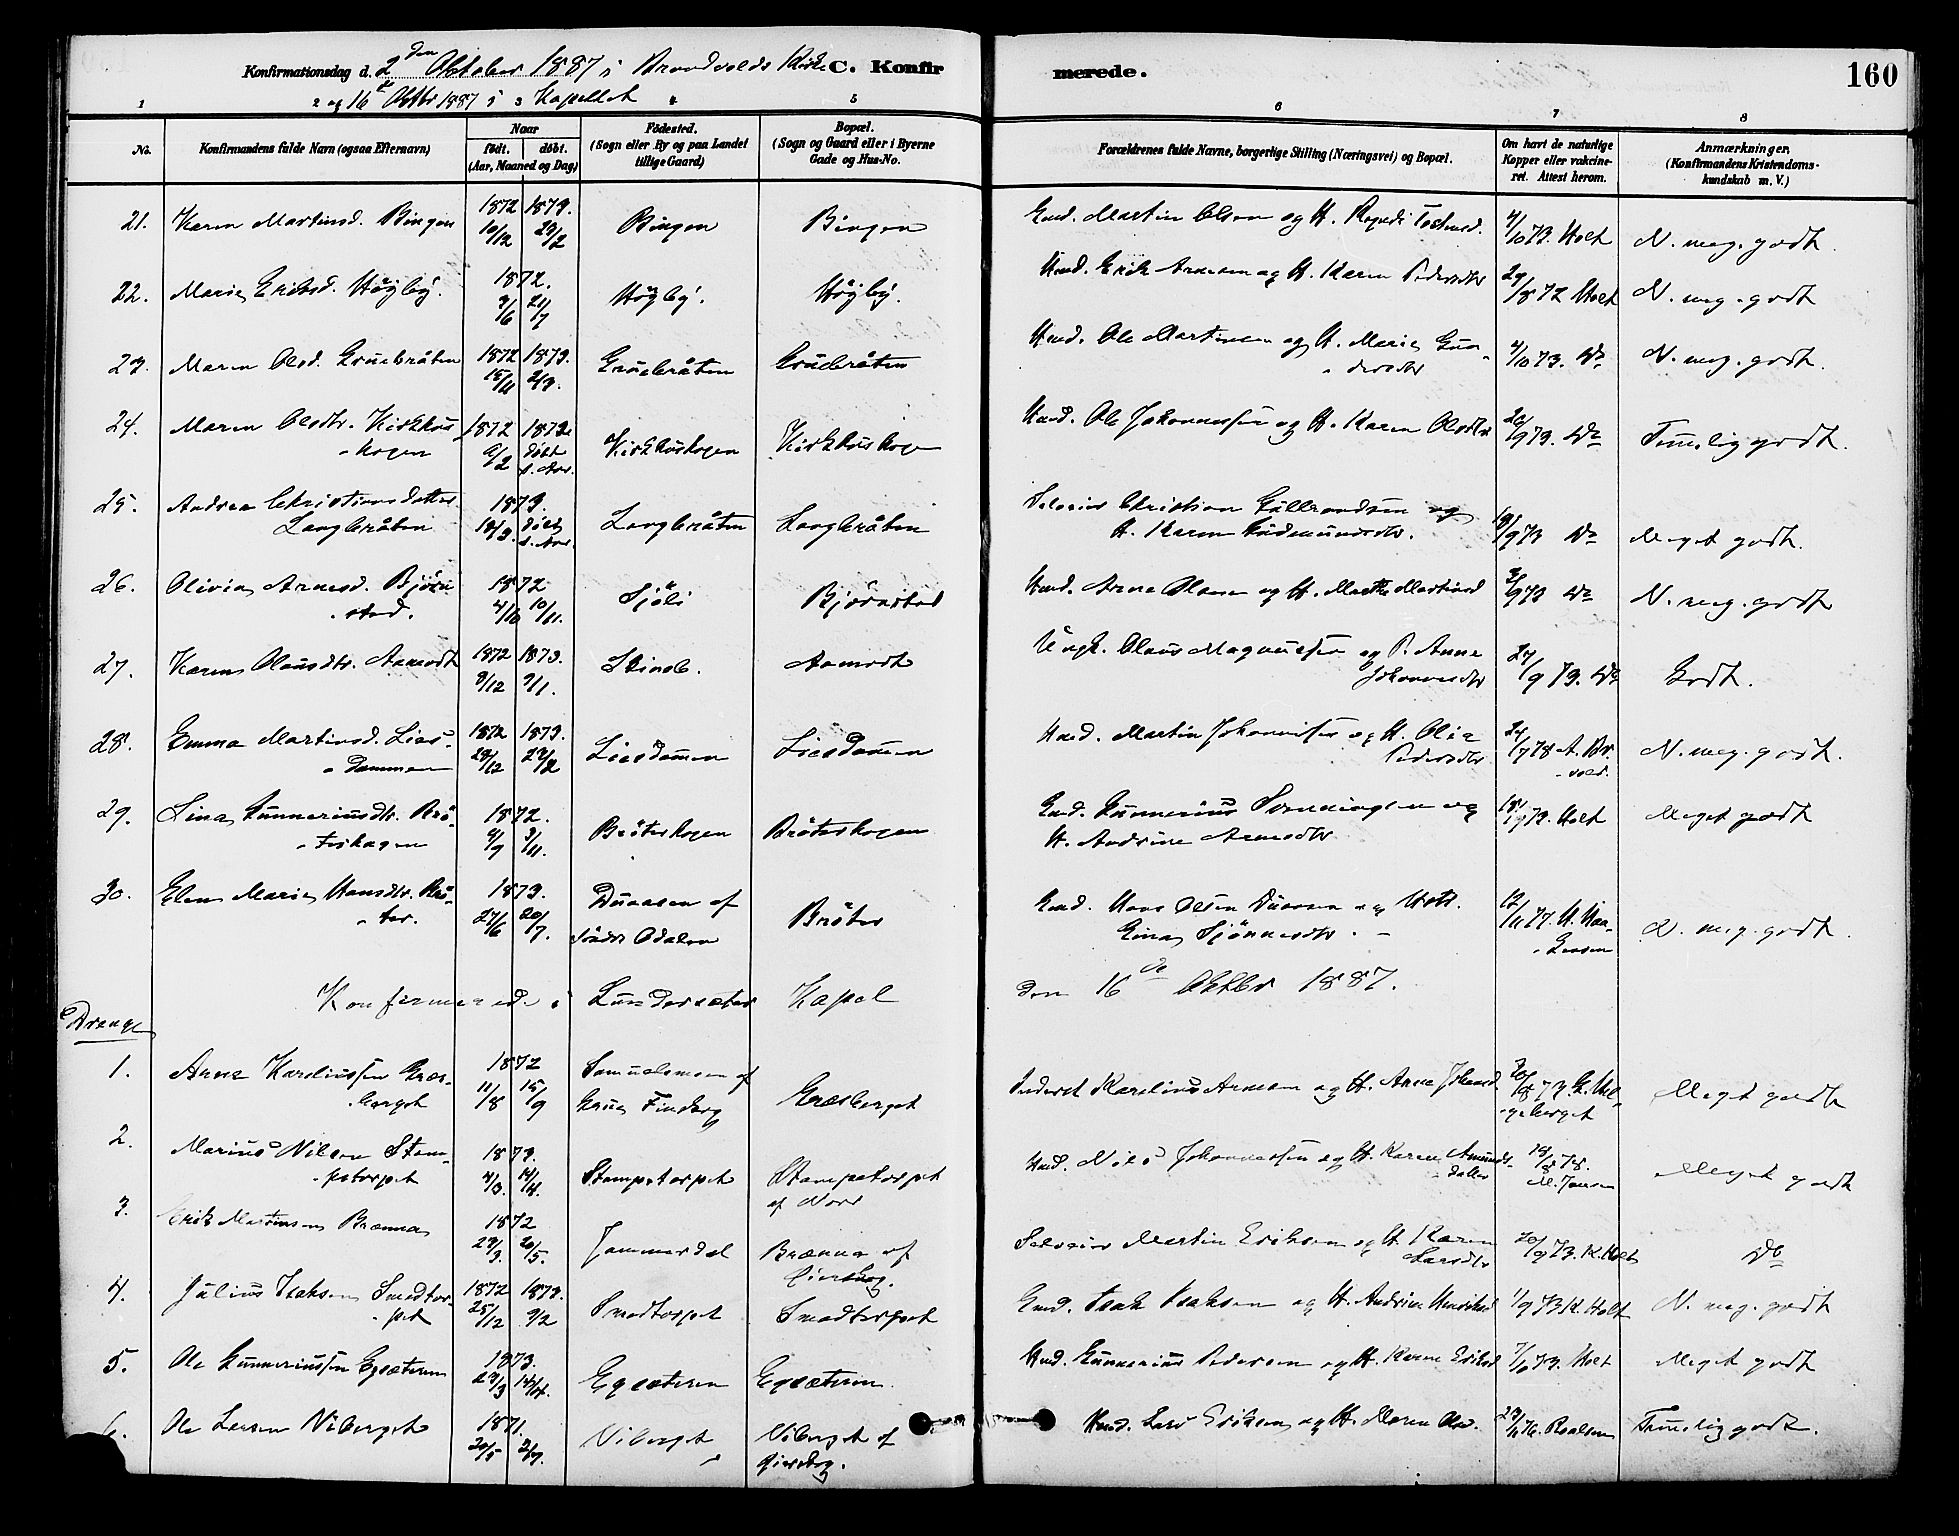 Konfirmationsdag d. 2den Oktober 1887 i Brandvolds Kirke C. Konfirmerede. 160
og 16de Oktbr 1887 i Kapellet
1 2 3 4 5 6 7 8
No.
Konfirmandens fulde Navn (ogsaa Efternavn)
Naar
født. døbt.
(Aar, Maaned og Dag)
Fødested.
(Sogn eller By og paa Landet
tillige Gaard)
Bopæl.
(Sogn og Gaard eller i Byerne
Gade og Hus-No.
Forældrenes fulde Navne, borgerlige Stilling (Næringsvei) og Bopæl.
Om havt de naturlige
Kopper eller vakcine-
ret. Attest herom.
Anmærkninger.
(Konfirmandens Kristendoms-
kundskab m. V.)
21. Karen Martinsd. Bingen 1872 10/12 1873. 23/2 Bingen Bingen Martin Olsen og H. 4/10 73. Holt N. meg. godt.
22. Marie Eriksd. Høgby. 1872. 9/6 21/7 Høgby. Høgby. Husd. Erik Arnesen og H. Karen Pedersdtr 29/8 72 Holt N. meg. godt
23. Maren Olsd. Gruebråten 1872 15/11 1873. 2/3. Gruebråten Gruebråten Husd. Ole Martinsen og H. Marie Gun-
dersdtr 4/10 73. Do N. meg. godt.
24. Maren Olsdtr. Kirkhus-
kogen 1872 2/2 1872 døbt s. Aar. Kirkhuskogen Kirkhuskogen Husd. Ole Johannessen og H. Karen Olsdtr 20/9 73. Do Temmelig godt.
25. Andrea Christiansdatter
Langbråten 1873. 18/3. døbt s. Aar. Langbråten Langbråten Selveier Christian Gulbrandsen og
H. Karen Gudmundsdtr. 19/9 73 Do Meget godt.
26. Olivia Arnesd. Bjørn-
stad. 1872 4/10 10/11. Sjøli Bjørnstad Husd. Arne Olsen og H. Marthe Martinsd 73 Do N. meg. godt
27. Karen Olausdtr. Aamodt 1872 9/12 1873. 9/1. Aamodt Ungk. Olaus Magnussen og P. Anne
Johannesdtr 27/9 73. Do Godt.
28. Emma Martinsd. Lies-
dammen 1872 29/12 1873. 23/2 Liesdammen Liesdammen Husd. Martin Johannessen og H. Olia
Pedersdtr 24/7 78 A. Br.
vold. N. meg. godt.
29. Lina Gunneriusdtr. Brø-
terskogen 1872. 9/9 3/11. Brøterskogen Brøterskogen Gunnerius og
H. Andrine Arnesdtr 19/9 73. Holt Meget godt
30. Elen Marie Hansdtr. Brø-
ter. 1873. 27/6 20/7. af
Søndre Odalen Brøter Hans Olsen og
12/11 77. H. Haa-
gensen N. meg. godt.
Konfirmerede i Lundersæter Kapel den 16de Oktbr 1887.
Drenge
1. Arne Karelius­sen Græs-
berget 1872 11/8 15/9 Samuelsmoen af
Grue Finskog Græsberget Karelius Arnesen og H. Anne Johansd. 73. G. Hel-
geberget Meget godt
2. Marius Nilsen Stam-
petorpet 1873. 4/3. 14/4. Stampetorpet Stampetorpet
af Nord Husd. Nils Johannessen og H. Karen Amunds-
datter 19/8 78.
M. Jensen Meget godt
3. Erik Martinsen Brænna 1872 29/3. 20/5. Jammerdal Brænna af
Eierskog. Selveier Martin Eriksen og H. Karen
Larsdtr 20/9 73. K. Holt Do
4. Julius Isaksen Smedtor-
pet 1872 25/12 1873. 9/2 Smedtorpet Smedtorpet Isak Isaksen og H. Andrine 1/9 73 K. Holt N. meg. godt
5. Ole Gunneriussen Egsæteren 1873. 23/3 14/4. Egsæteren Egsæteren. Husd. Gunnerius Pedersen og H. Karen Eriksd 73. Holt Meget godt
6. Ole Larsen Niberget 1871. 20/5 2/7. Niberget Niberget af
Eierskog. Husd. Lars Eriksen og H. Maren Olsd. 29/11 76. Roalsen Temmelig godt.